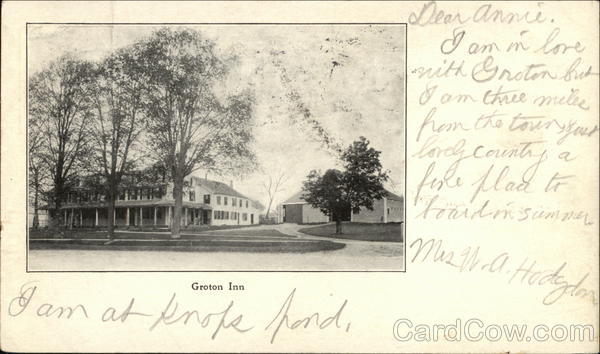 Dear Annie.
I am in love
with Groton but
I am three miles
from the town, your
lovely country a
fine place to
board in summer
Mrs W. A. Hodgdon
Groton Inn
I am at Knops Pond.
CardCow.com